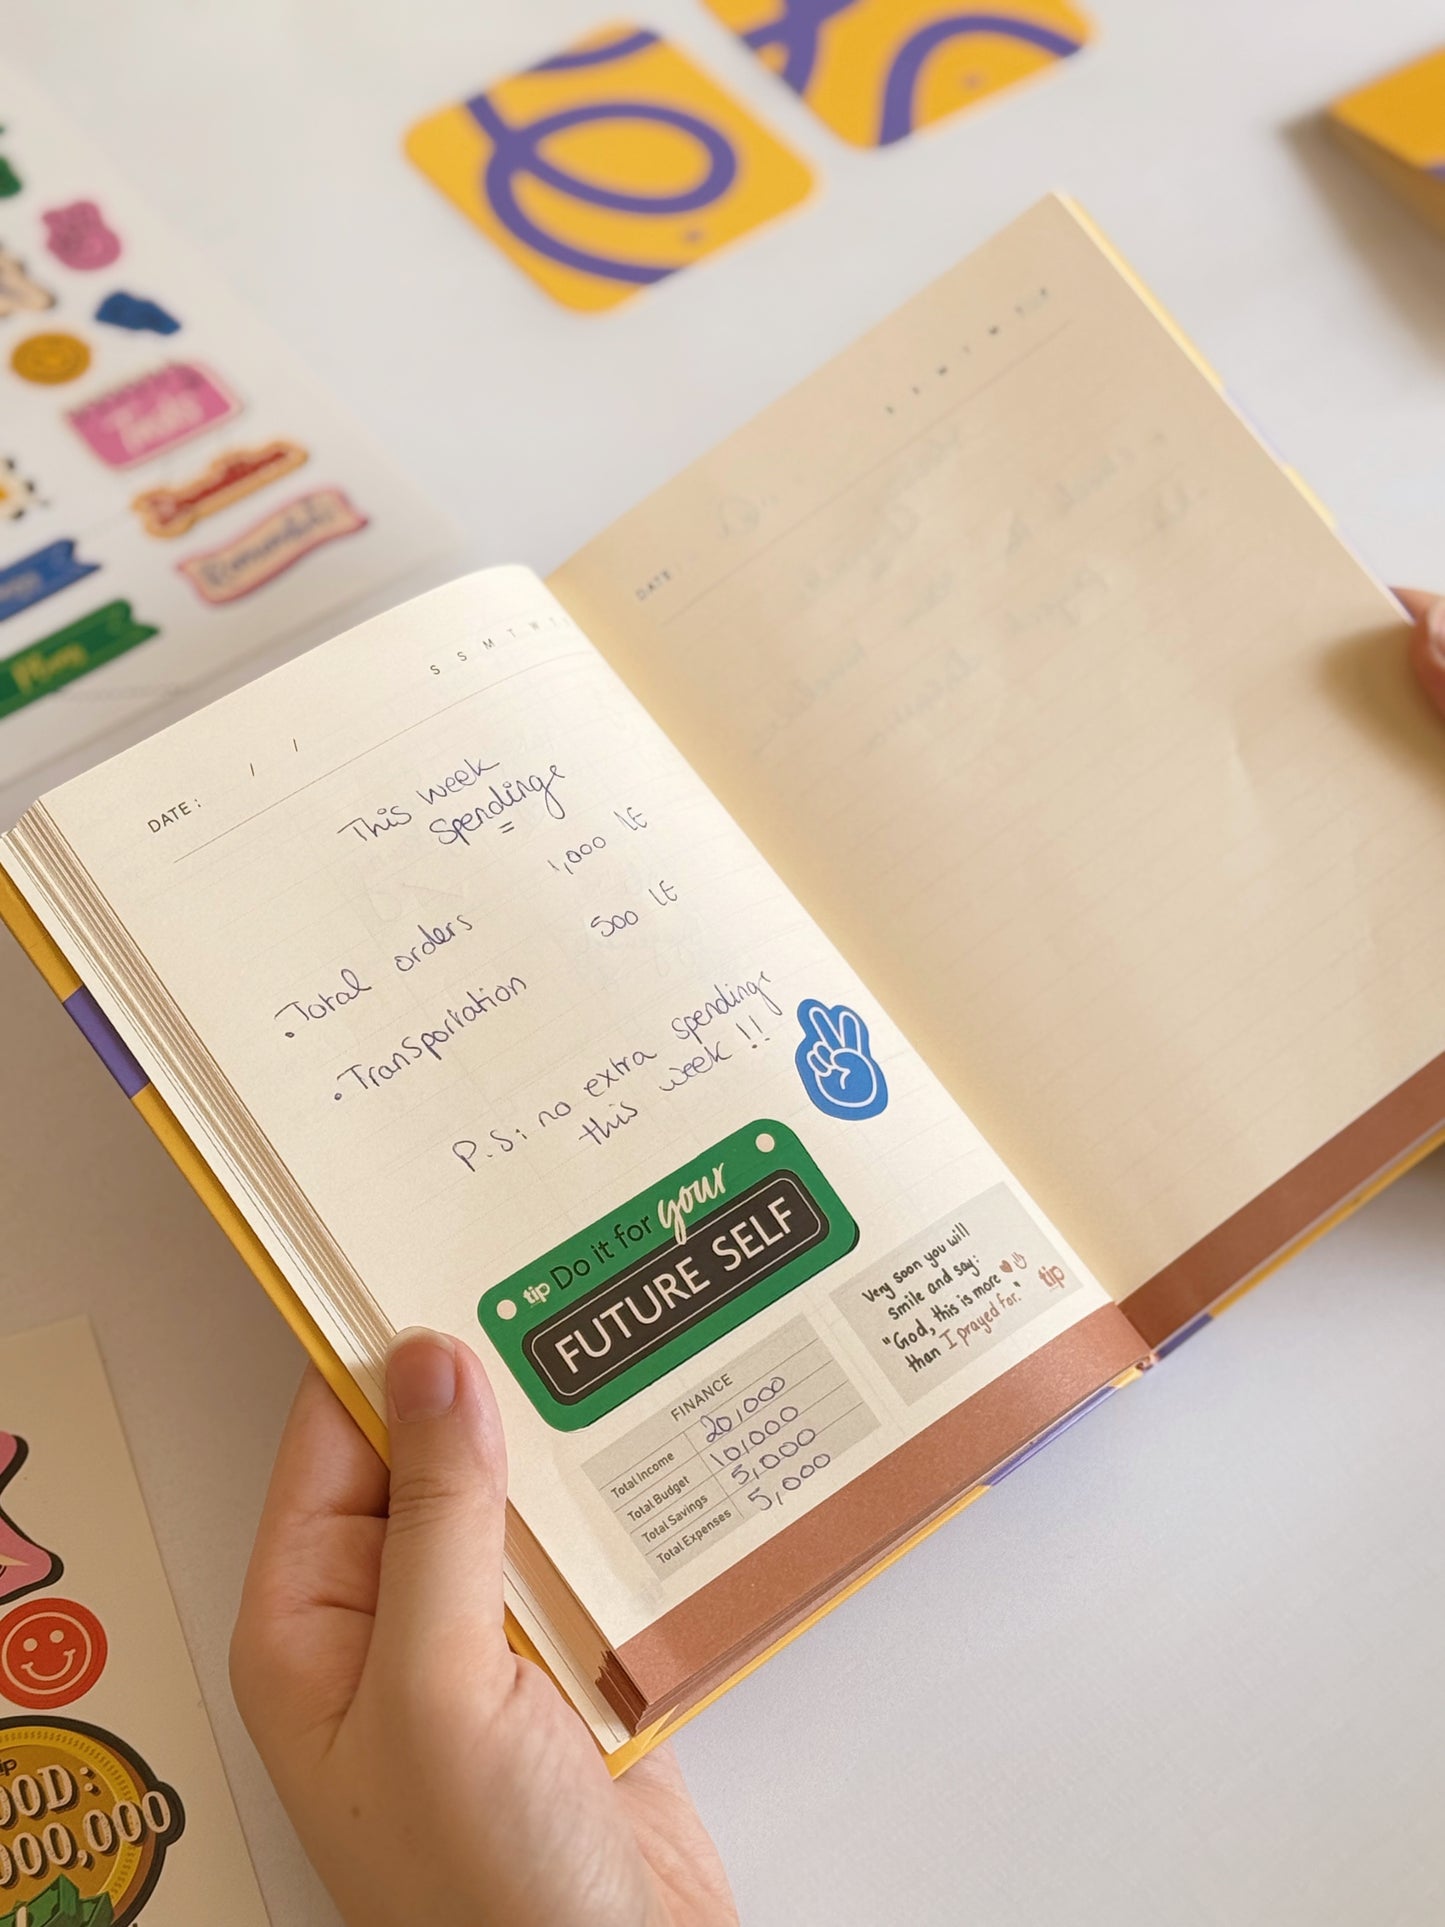 Tasks
Money
DATE : / /
S S M T W T
This week
spendings
1,000 LE
• Total orders
500 LE
• Transportation
P.S: no extra spendings
this week !!
tip Do it for your
FUTURE SELF
Very soon you will
smile and say:
"God, this is more
than I prayed for."
tip
FINANCE
Total Income 20,000
Total Budget 10,000
Total Savings 5,000
Total Expenses 5,000
DATE :
OOD:
000,000